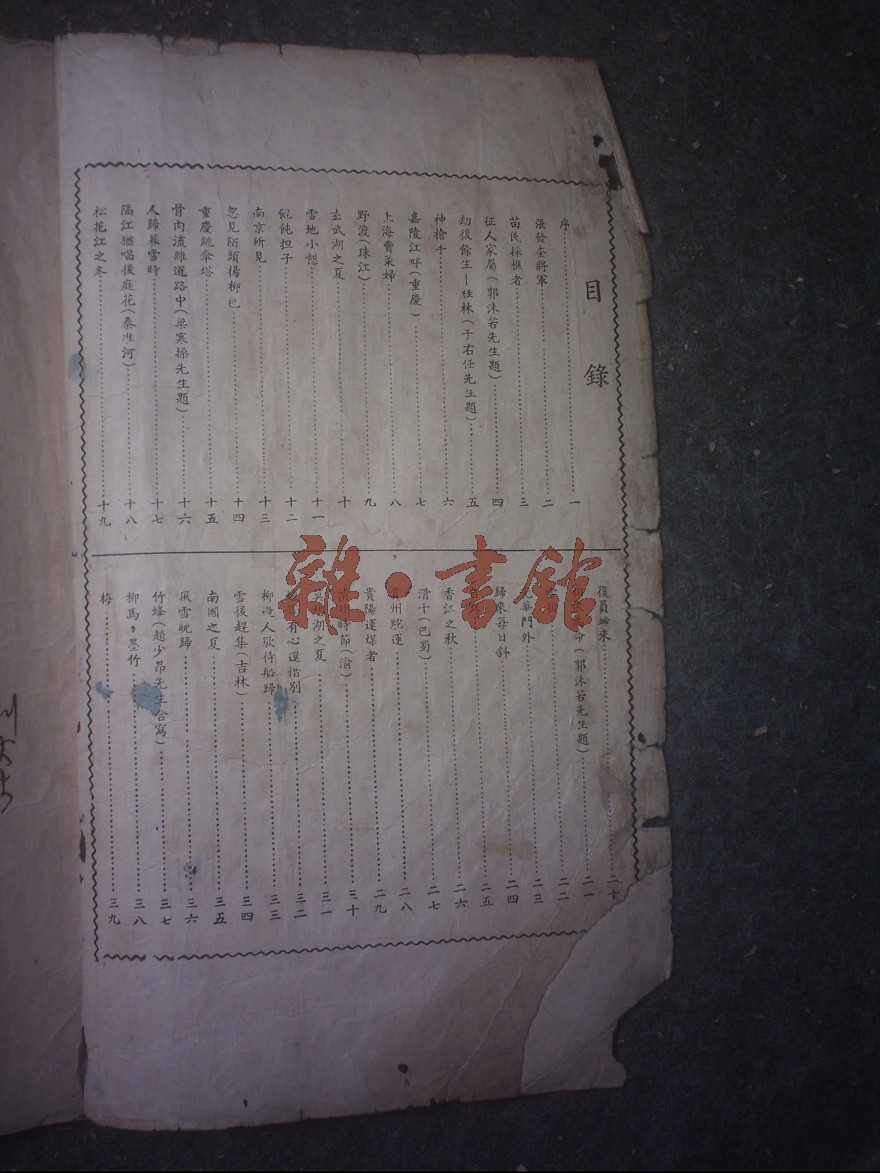 目錄
序 一
張發奎將軍 二
苗民採樵者 三
征人家屬(郭沫若先生題) 四
劫後餘生—桂林(于右任先生題) 五
神槍手 六
嘉陵江畔(重慶) 七
上海賣菜婦 八
野渡(珠江) 九
玄武湖之夏 十
雪地小憩 十一
餛飩担子 十二
南京所見 十三
忽見陌頭楊柳色 十四
重慶跳傘塔 十五
骨肉流離道路中(梁寒操先生題) 十六
人歸暮雪時 十七
隔江猶唱後庭花(秦淮河) 十八
松花江之冬 十九
復員歸來 二十
命(郭沫若先生題) 二一
二二
門外 二三
歸來每日斜 二四
二五
香江之秋 二六
滑干(巴蜀) 二七
貴州馱運 二八
貴陽運煤者 二九
清明時節(渝) 三十
湖之夏 三一
有心還惜別 三二
柳邊人歇待船歸 三三
雪後趕集(吉林) 三四
南國之夏 三五
風雪晚歸 三六
竹蜂(趙少昂先生合寫) 三七
柳馬,墨竹 三八
梅 三九
雜·書館